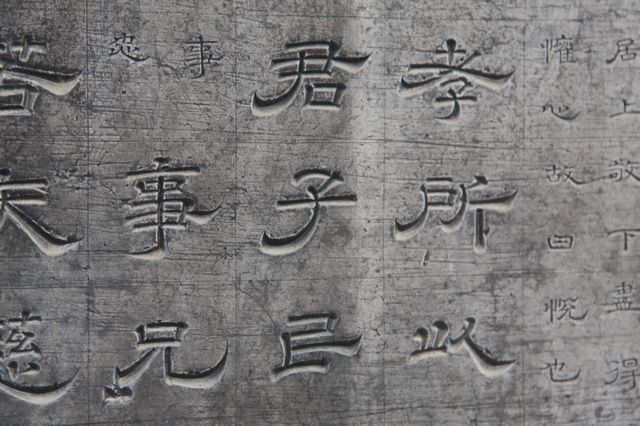 居上敬下盡得
懽心故曰悅也
孝所以
君子民
事
忠
事兄
若夫慈